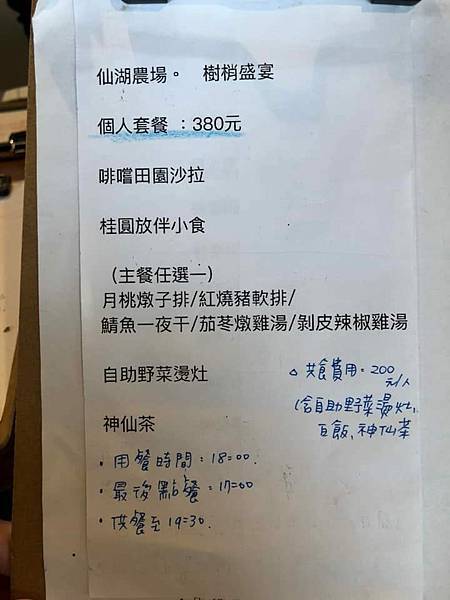 仙湖農場。 樹梢盛宴
個人套餐 :380元
啡嚐田園沙拉
桂圓放伴小食
(主餐任選一)
月桃燉子排/紅燒豬軟排/
鯖魚一夜干/茄苳燉雞湯/剝皮辣椒雞湯
自助野菜燙灶
神仙茶
△共食費用:200元/人
(含自助野菜燙灶,
白飯、神仙茶
·用餐時間:18:00.
·最後點餐:17:00
·供餐至19:30.